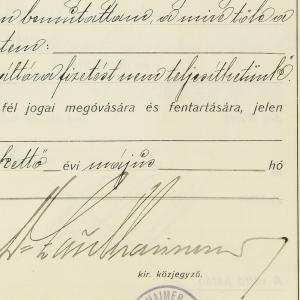 n bemutattam, a mire tőle a
tem:
általa fizetést nem teljesíthetünk.
fél jogai megóvására és fentartására, jelen
kettő évi május hó
kir. közjegyző.
HAIMER